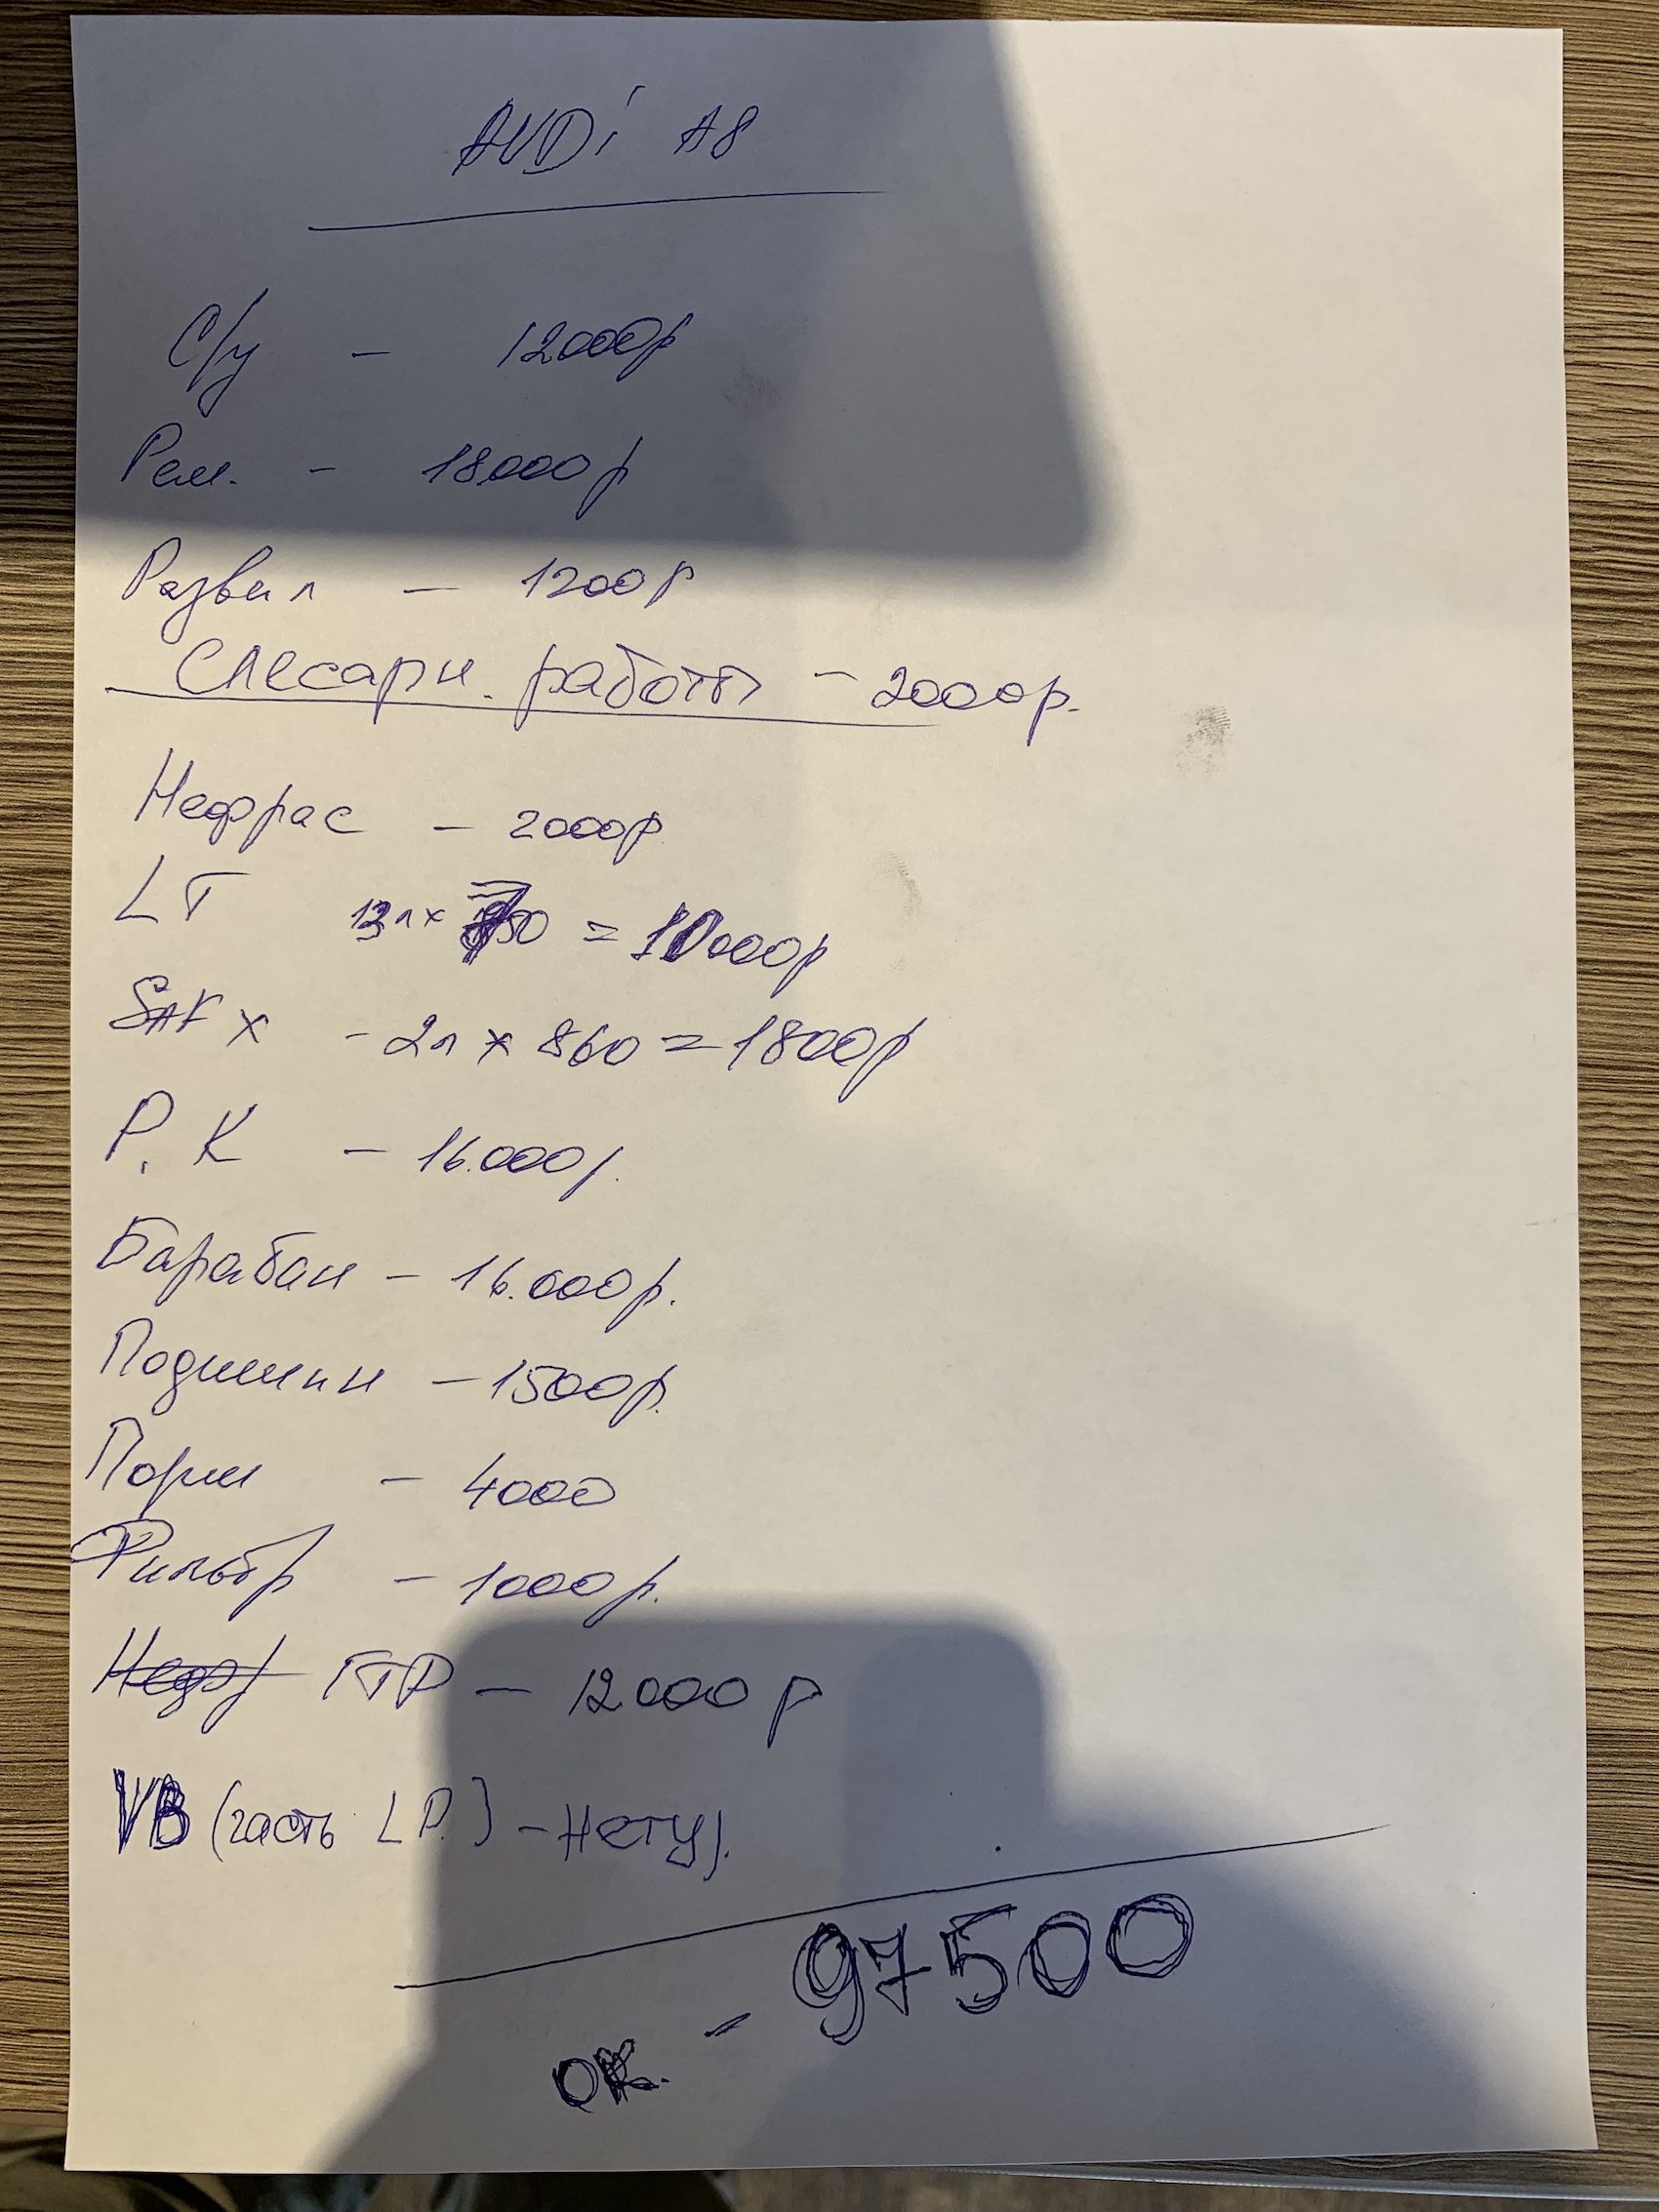 AUDi A8
С/у - 12000р
Рем. - 18000р
Развал - 1200р
Слесарн. работы - 2000р.
Нефрас - 2000р
LT 13л х 750 = 10000р
SAF х - 2л х 860 = 1800р
Р.К - 16.000р.
Барабан - 16.000р.
Подшипн - 1500р.
Порш - 4000
Фильтр - 1000р.
ГТР - 12000р
VB (часть LP.) - Нету).
ок. - 97500